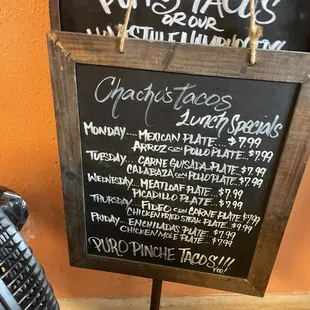 PURO TACOS
OR OUR
HOMESTYLE HAMBURGERS
Chacho's Tacos
Lunch Specials
MONDAY.... MEXICAN PLATE... $7.99
ARROZ CON POLLO PLATE...$7.99
TUESDAY.... CARNE GUISADA PLATE..$7.99
CALABAZA CON POLLO PLATE..$7.99
WEDNESDAY... MEATLOAF PLATE...$7.99
PICADILLO PLATE...$7.99
THURSDAY... FIDEO CON CARNE PLATE $7.99
CHICKEN FRIED STEAK PLATE $7.99
FRIDAY... ENCHILADAS PLATE..$7.99
CHICKEN MOLE PLATE...$7.99
PURO PINCHE TACOS!!!